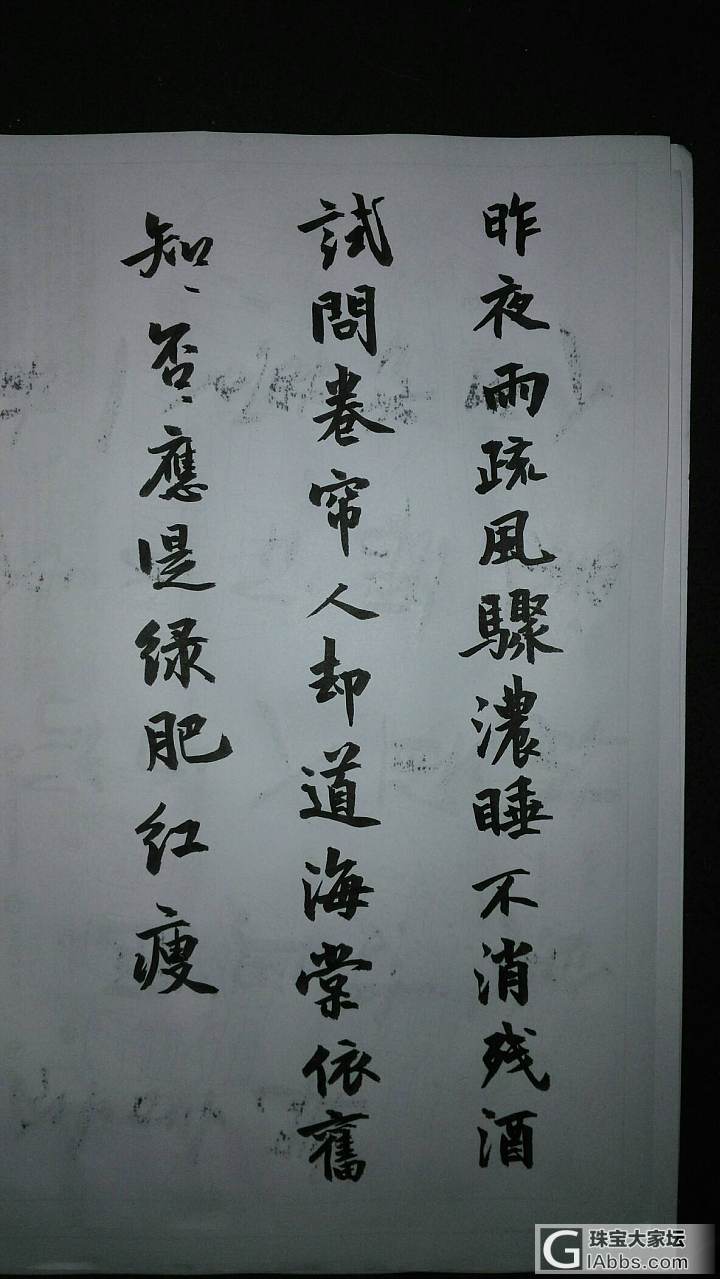 昨夜雨疏風驟濃睡不消残酒
試問卷帘人却道海棠依舊
知、否、應是绿肥红瘦
珠宝大家坛
GIAbbs.com